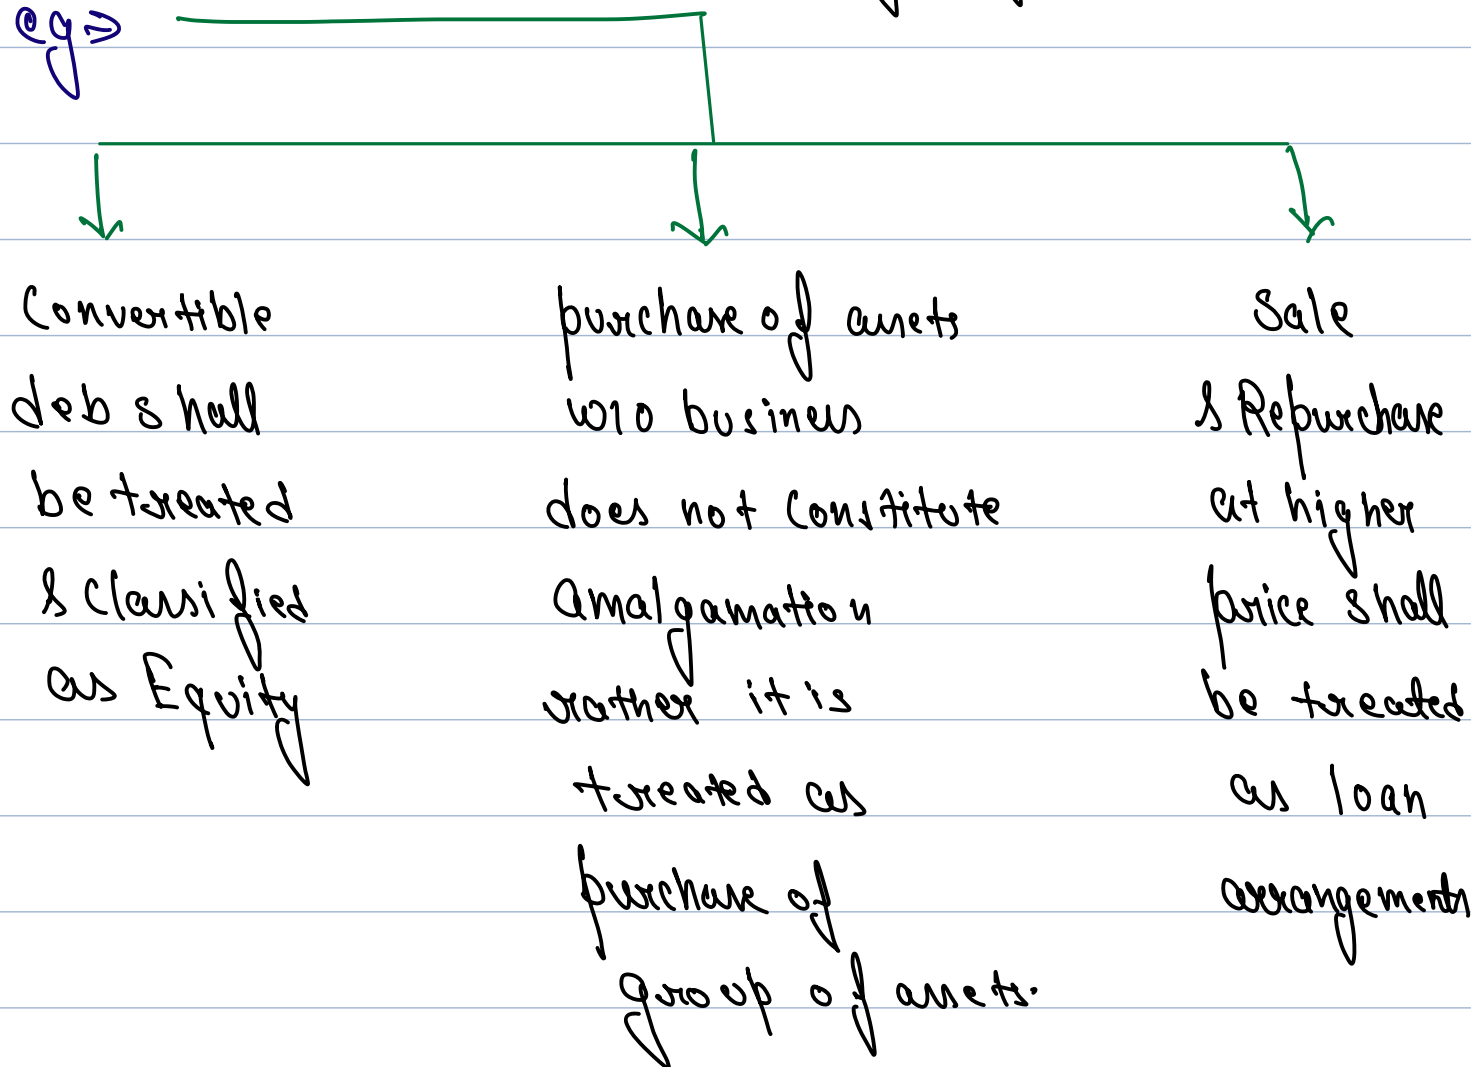 eg⇒
Convertible
deb shall
be treated
& classified
as Equity
purchase of assets
w/o business
does not constitute
amalgamation
rather it is
treated as
purchase of
group of assets.
Sale
& Repurchase
at higher
price shall
be treated
as loan
arrangements